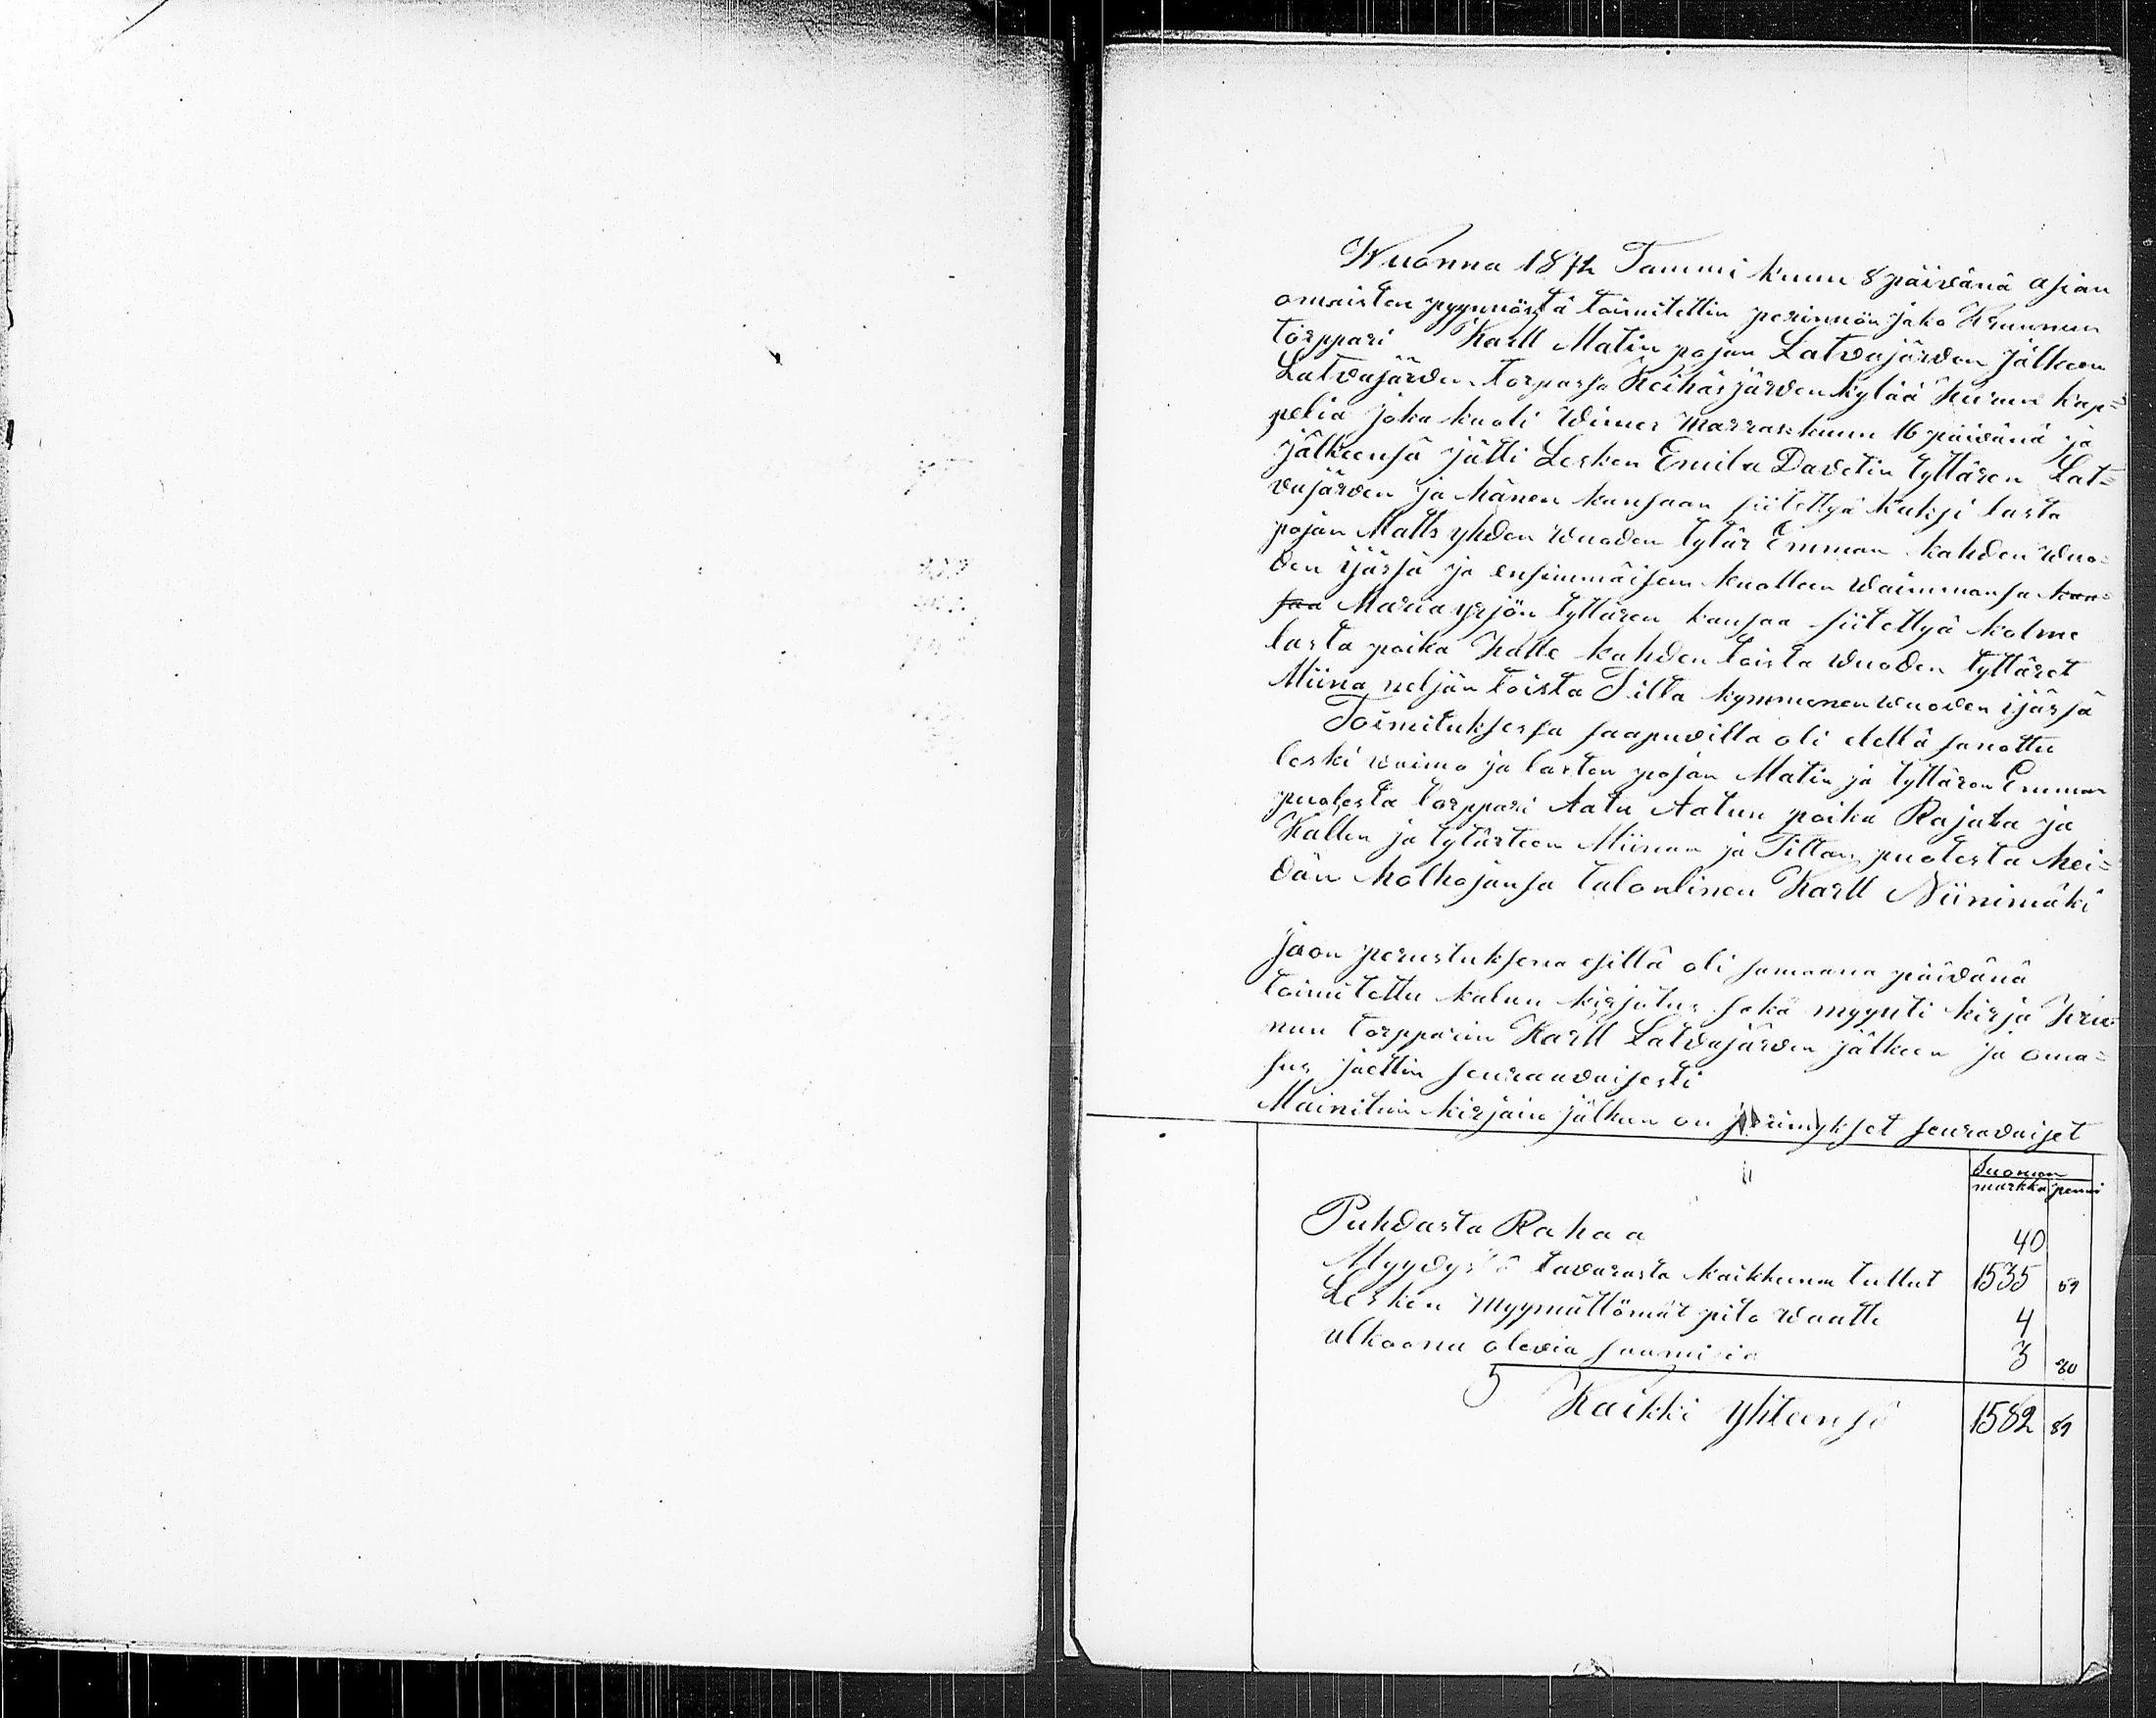 Wuonna 1872 Tammi kuun 8 päivänä asian
omaisten pyynnöstä toimitettin perinnön jako Kruunun
torppari Karll Matin pojan Latvajärven jälkeen
Latvajärven torpassa Keihäsjärven kylää Keurun kap=
pelia joka kuoli Wiimes Marraskuun 16 päivänä ja
jälkeensä jätti Lesken Emila Davetin tyttären Lat=
vajärven ja hänen kansaan siitettyä kaksi lasta
pojan Matts yhden wuoden tytär Emman kahden wuo=
den ijäsä ja ensimmäisen kuolleen waimmonsa kan=
saa Maria yrjön tyttären kansaa siitettyä kolme
lasta poika Kalle kahden toista wuoden tyttäret
Miina neljän toista Tilta kymmenen wuoden ijäsä
Toimituksessa saapuvilla oli edellä sanottu
leski waimo ja lasten pojan Matin ja tyttären Emman
puolesta torppari Aatu Aatun poika Rajala ja
Kallen ja tytärteen Miinan ja Tiltan puolesta hei=
dän holhojansa talonlinen Karll Niinimäki
jaon perustuksena esillä oli samaana päivänä
toimitettu kalun kirjotus sekä myynti kirja Kru=
nun torpparin Karll Latvajärven jälkeen ja oma=
sus jaettin seuraavaisesti
Mainitun kirjain jälkeen on perimykset seuravaiset
Suomen
markka penni
Puhdasta Rahaa 40
Myydystä tavarasta kaikkunna tullut 1535 59
Lesken myymättömät pito waatte 4
ulkoona olevia saamisia 3 30
Kaikki yhteensä 1582 89